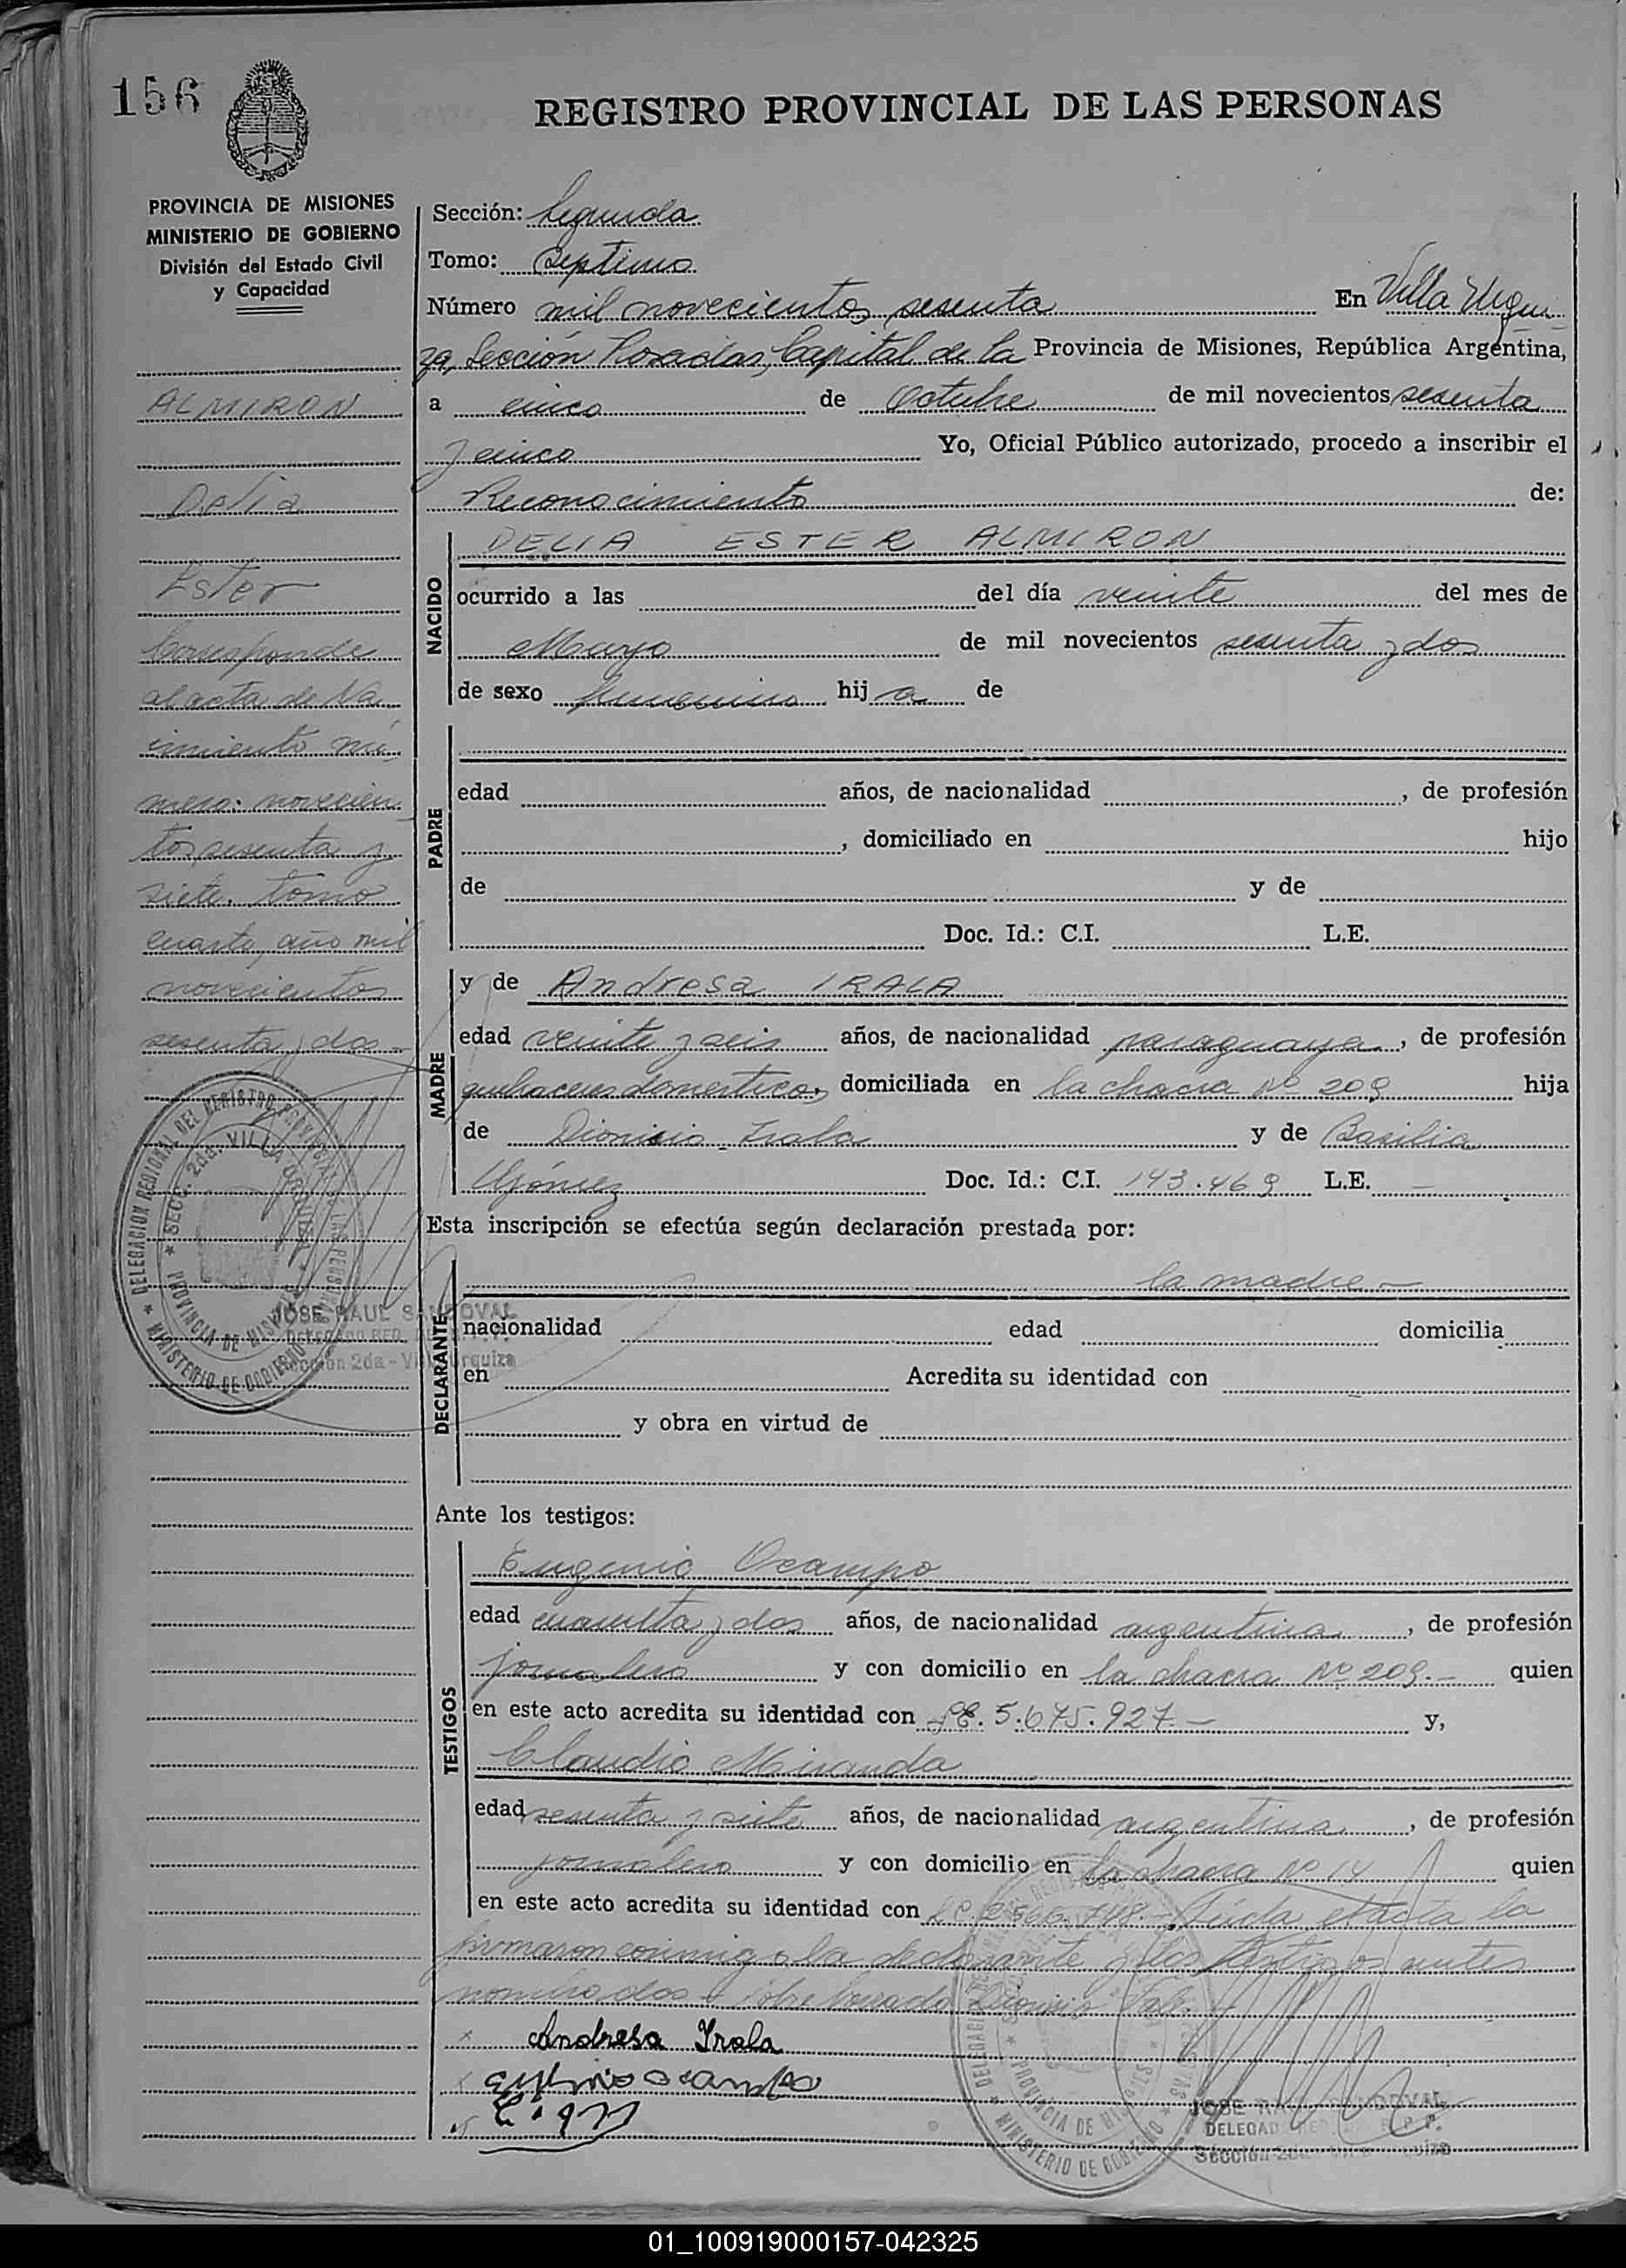 156
REGISTRO PROVINCIAL DE LAS PERSONAS
PROVINCIA DE MISIONES
MINISTERIO DE GOBIERNO
División del Estado Civil
y Capacidad
ALMIRON
Delia
Ester
Corresponde
al acta de Na
cimiento nú
mero: novecien
tos sesenta y
siete. tomo
cuarto, año mil
novecientos
sesenta y dos -
Sección: Segunda
Tomo: Septimo
Número mil novecientos sesenta En Villa Urqui
za, Sección Posadas, Capital de la Provincia de Misiones, República Argentina,
a cinco de Octubre de mil novecientos sesenta
y cinco Yo, Oficial Público autorizado, procedo a inscribir el
Reconocimiento de:
NACIDO
DELIA ESTER ALMIRON
ocurrido a las del día veinte del mes de
Mayo de mil novecientos sesenta y dos
de sexo femenino hija de
PADRE
edad años, de nacionalidad , de profesión
, domiciliado en hijo
de y de
Doc. Id.: C.I. L.E.
MADRE
y de Andresa IRALA
edad veinte y seis años, de nacionalidad paraguaya, de profesión
quehaceres domesticos, domiciliada en la chacra Nº 209 hija
de Dionisio Irala y de Basilia
Gómez Doc. Id.: C.I. 143.469 L.E. -
Esta inscripción se efectúa según declaración prestada por:
DECLARANTE
la madre -
nacionalidad edad domicilia
en Acredita su identidad con
y obra en virtud de
Ante los testigos:
TESTIGOS
Eugenio Ocampo
edad cuarenta y dos años, de nacionalidad argentina, de profesión
jornalero y con domicilio en la chacra Nº 209.- quien
en este acto acredita su identidad con 5.675.927.- y,
Claudio Miranda
edad sesenta y siete años, de nacionalidad argentina, de profesión
jornalero y con domicilio en la chacra Nº 14 quien
en este acto acredita su identidad con Leida el acta la
firmaron conmigo la declarante y los testigos antes
nombrados - Sobre borrado
x Andresa Irala
x
DELEGACION REGIONAL DEL REGISTRO PROVINCIAL DE LAS PERSONAS
SECC. 2da. VILLA URQUIZA
PROVINCIA DE MISIONES
MINISTERIO DE GOBIERNO
JOSE RAUL SANDOVAL
DELEGADO REG.
Sección 2da - Villa Urquiza
DELEGACION
PROVINCIA DE MISIONES
MINISTERIO DE GOBIERNO
JOSE RAUL SANDOVAL
DELEGADO R. P. P.
Sección 2da. Villa Urquiza
01_100919000157-042325